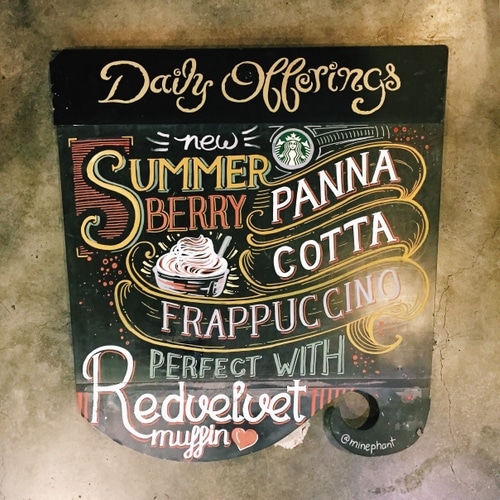 Daily Offerings
new
SUMMER
BERRY
PANNA
COTTA
FRAPPUCCINO
PERFECT WITH
Redvelvet
muffin
@minephant